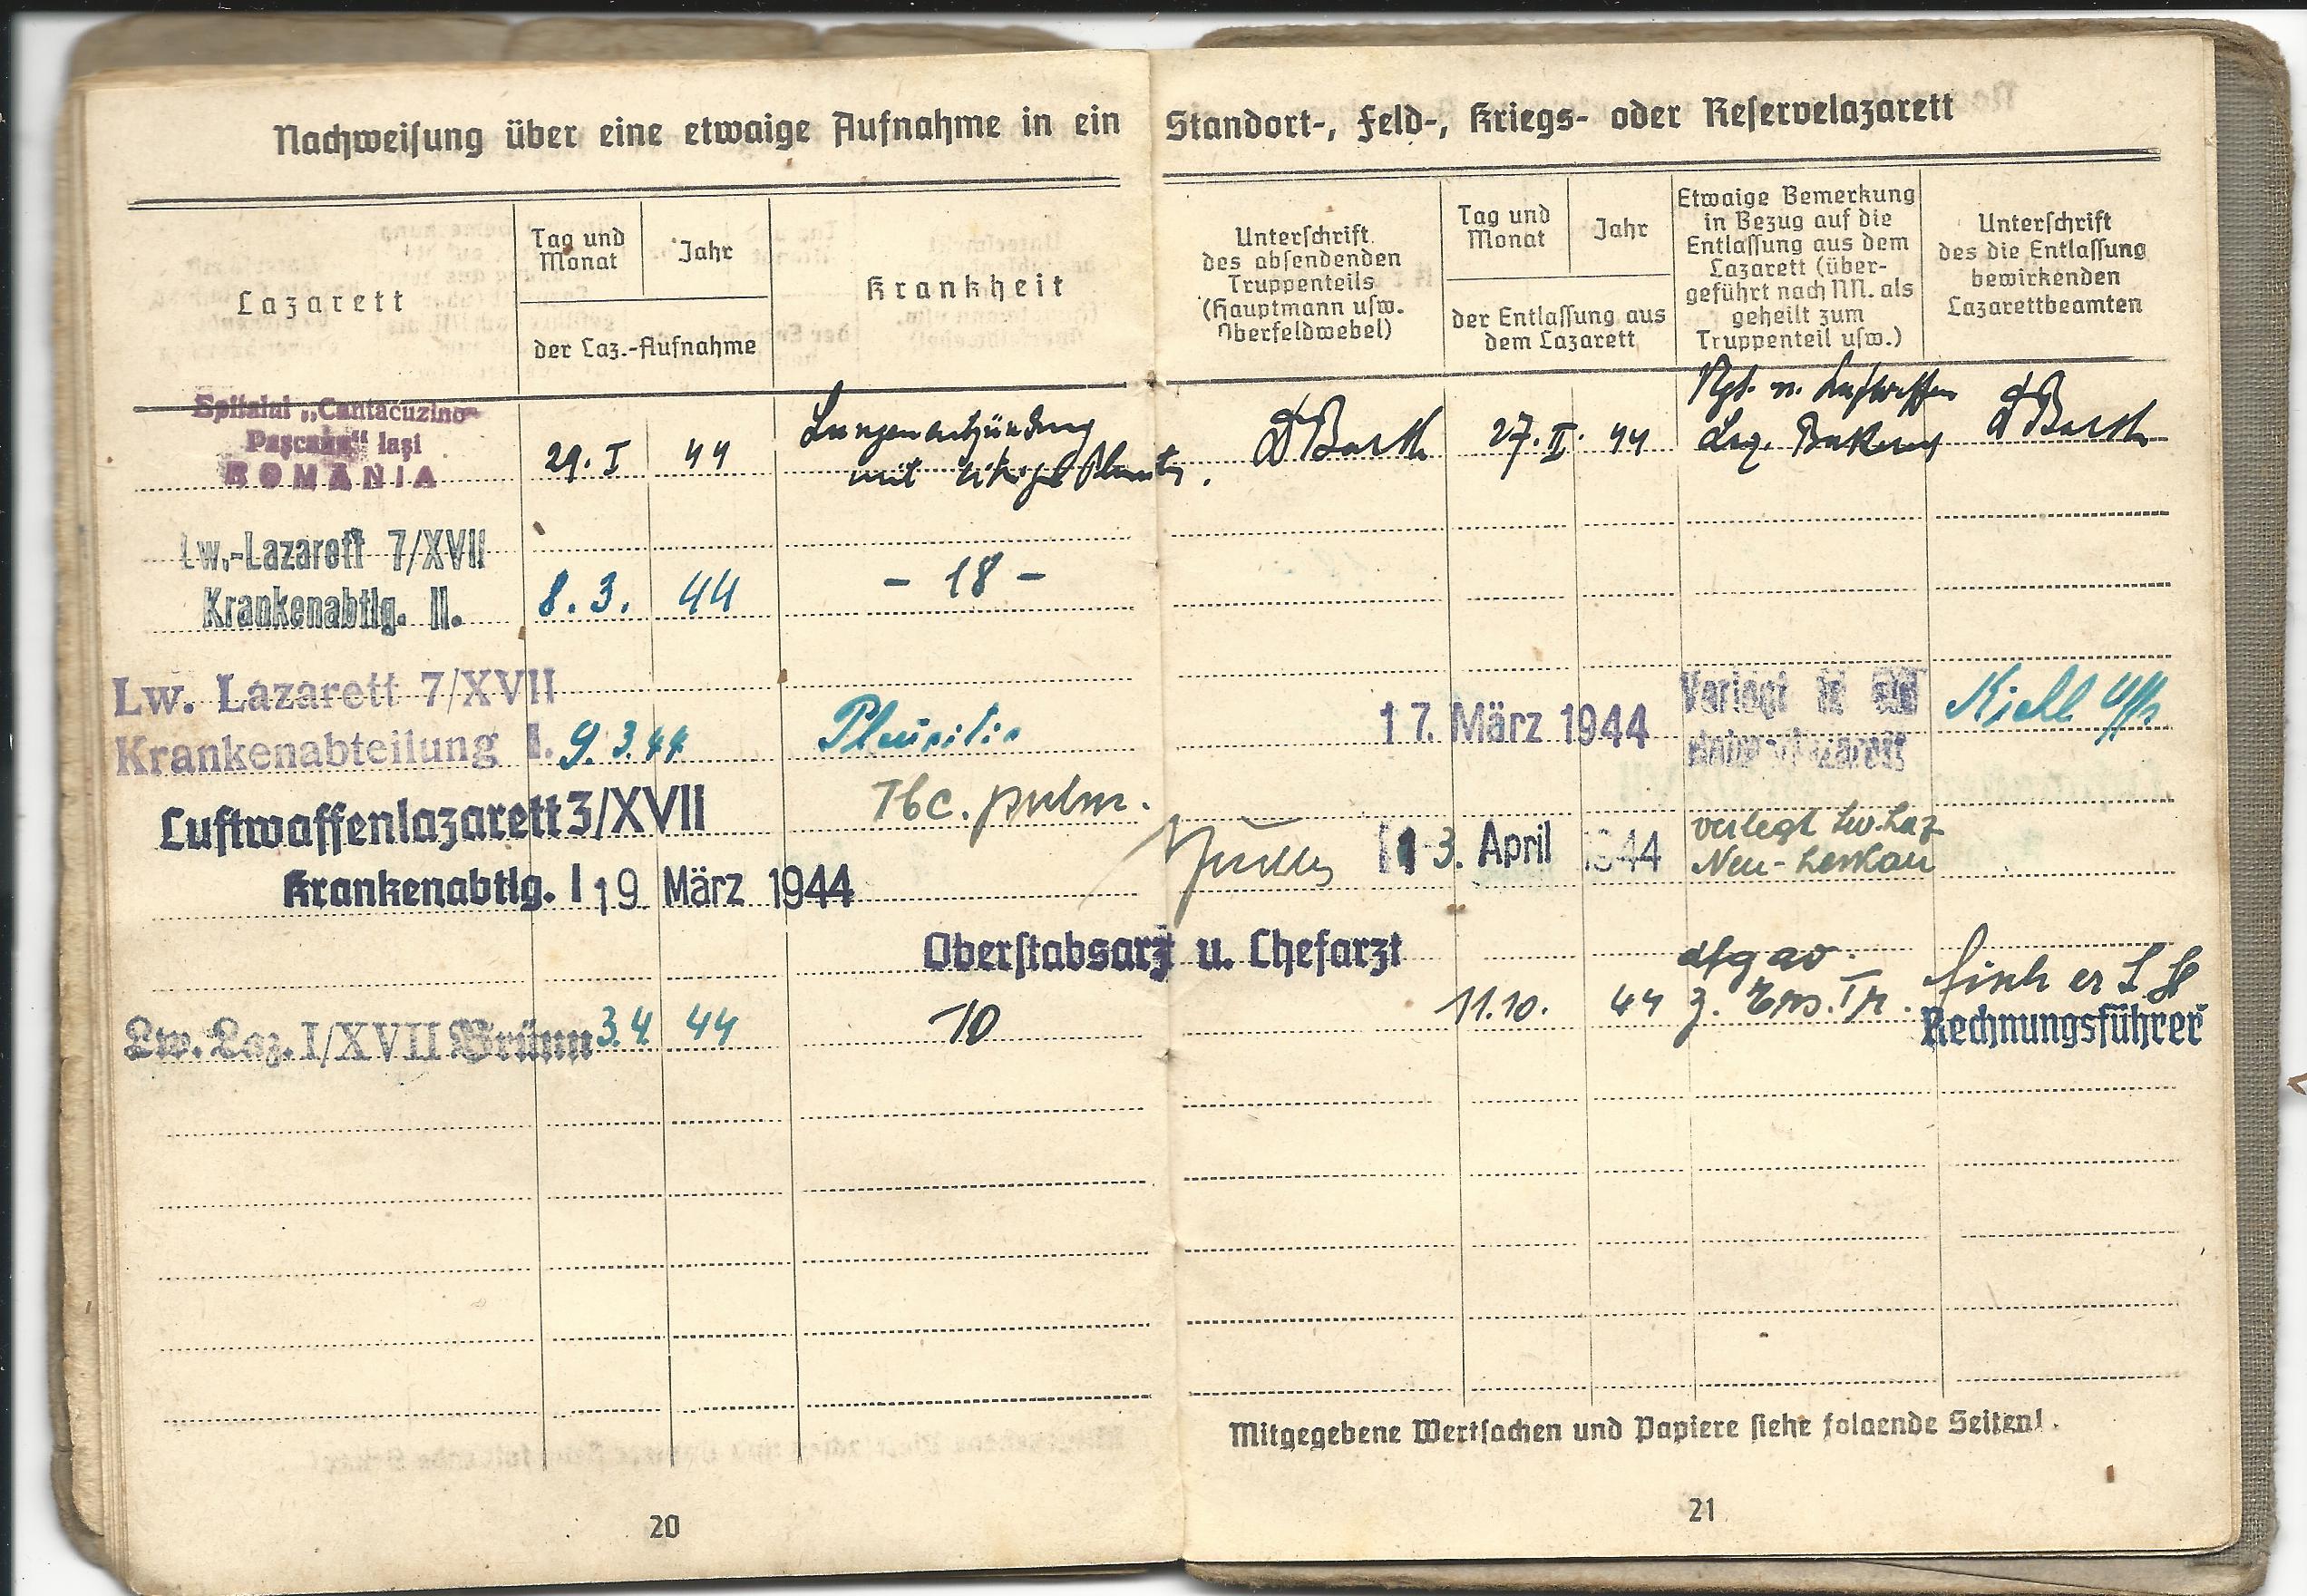 Nachweisung über eine etwaige Aufnahme in ein Standort-, Feld-, Kriegs- oder Reservelazarett
Lazarett
Tag und
Monat
Jahr
der Laz.-Aufnahme
Krankheit
Unterschrift
des absendenden
Truppenteils
(Hauptmann usw.
Oberfeldwebel)
Tag und
Monat
Jahr
der Entlassung aus
dem Lazarett
Etwaige Bemerkung
in Bezug auf die
Entlassung aus dem
Lazarett (über-
geführt nach NN. als
geheilt zum
Truppenteil usw.)
Unterschrift
des die Entlassung
bewirkenden
Lazarettbeamten
Spitalul „Cantacuzino
Pașcanu" Iași
ROMANIA
29. I 44
Lungenentzündung
mit
Barth
27. II. 44
Laz.
Barth
Lw.-Lazarett 7/XVII
Krankenabtlg. II.
8. 3. 44
- 18 -
Lw. Lazarett 7/XVII
Krankenabteilung I.
9. 3. 44
Pleuritis
17. März 1944
Verlegt in ein
Luftwaffenlazarett 3/XVII
Krankenabtlg. I 19 März 1944
Tbc. pulm.
3. April 1944
verlegt Lw. Laz
Neu-Leskau
Oberstabsarzt u. Chefarzt
Lw. Laz. I/XVII Brünn
3. 4. 44
10
11.10. 44
dfg av.
z. Ers. Tr.
Rechnungsführer
Mitgegebene Wertsachen und Papiere siehe folgende Seiten!
20
21